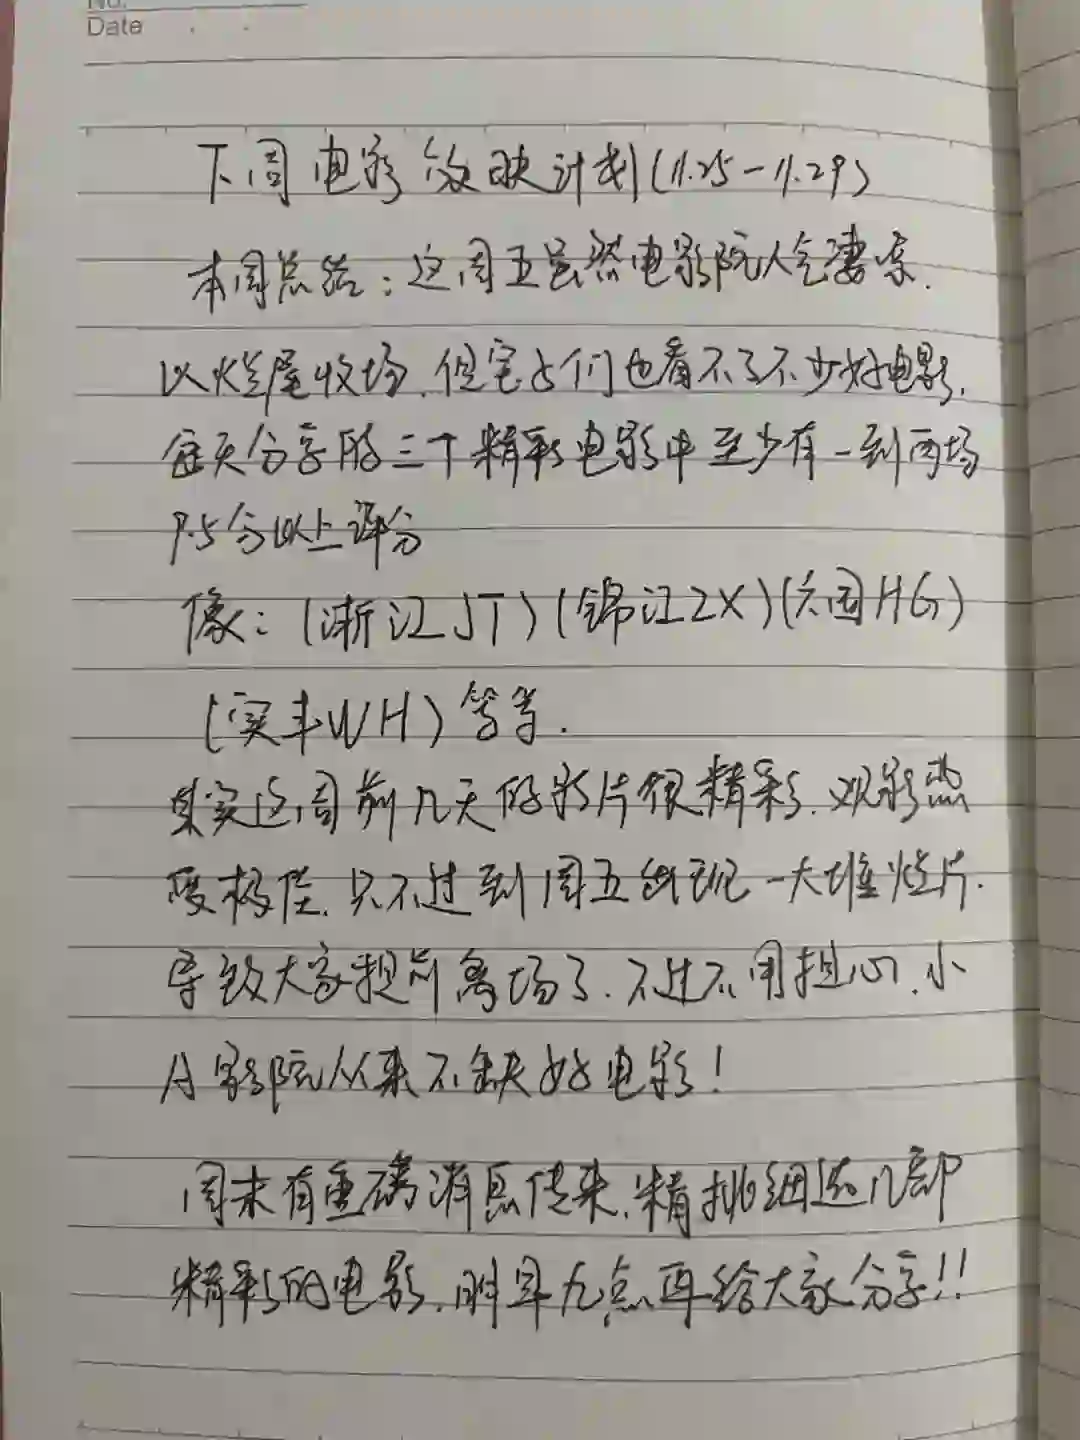 No.
Date
下周电影放映计划(11.25-11.29)
本周总结:这周五虽然电影院人气凄凉.
以烂尾收场.但宅友们也看不了不少好电影.
每天分享的三个精彩电影中至少有一到两场
9.5分以上评分
像:(浙江JT)(锦江ZX)(六国HG)
(实丰WH)等等.
其实这周前几天的影片很精彩.观影热
度极佳.只不过到周五出现一大堆烂片.
导致大家提前离场了.不过不用担心.小
A影院从来不缺好电影!
周末有重磅消息传来.精挑细选几部
精彩的电影.明早九点再给大家分享!!